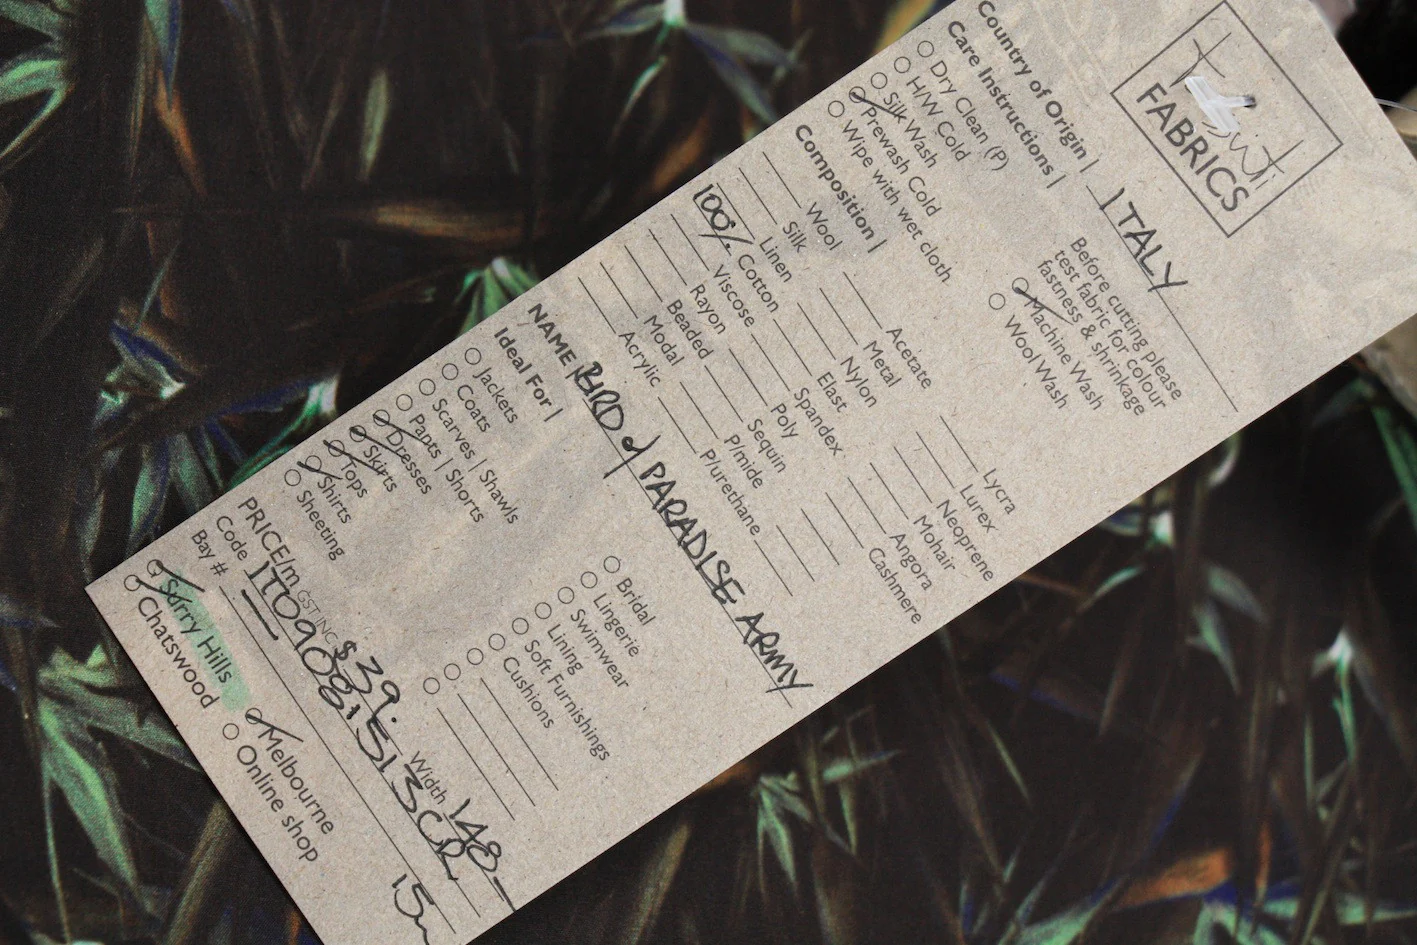 Tessuti
FABRICS
Country of Origin | ITALY
Care Instructions |
Dry Clean (P)
H/W Cold
Silk Wash
Prewash Cold
Wipe with wet cloth
Before cutting please
test fabric for colour
fastness & shrinkage
Machine Wash
Wool Wash
Composition |
Wool
Silk
Linen
100% Cotton
Viscose
Rayon
Beaded
Modal
Acrylic
Acetate
Metal
Nylon
Elast
Spandex
Poly
Sequin
P/mide
P/urethane
Lycra
Lurex
Neoprene
Mohair
Angora
Cashmere
NAME | BIRD of PARADISE ARMY
Ideal For |
Jackets
Coats
Scarves | Shawls
Pants | Shorts
Dresses
Skirts
Tops
Shirts
Sheeting
Bridal
Lingerie
Swimwear
Lining
Soft Furnishings
Cushions
PRICE/m GST INC $39.- Width 148-
Code
Bay #
Surry Hills
Chatswood
Melbourne
Online shop